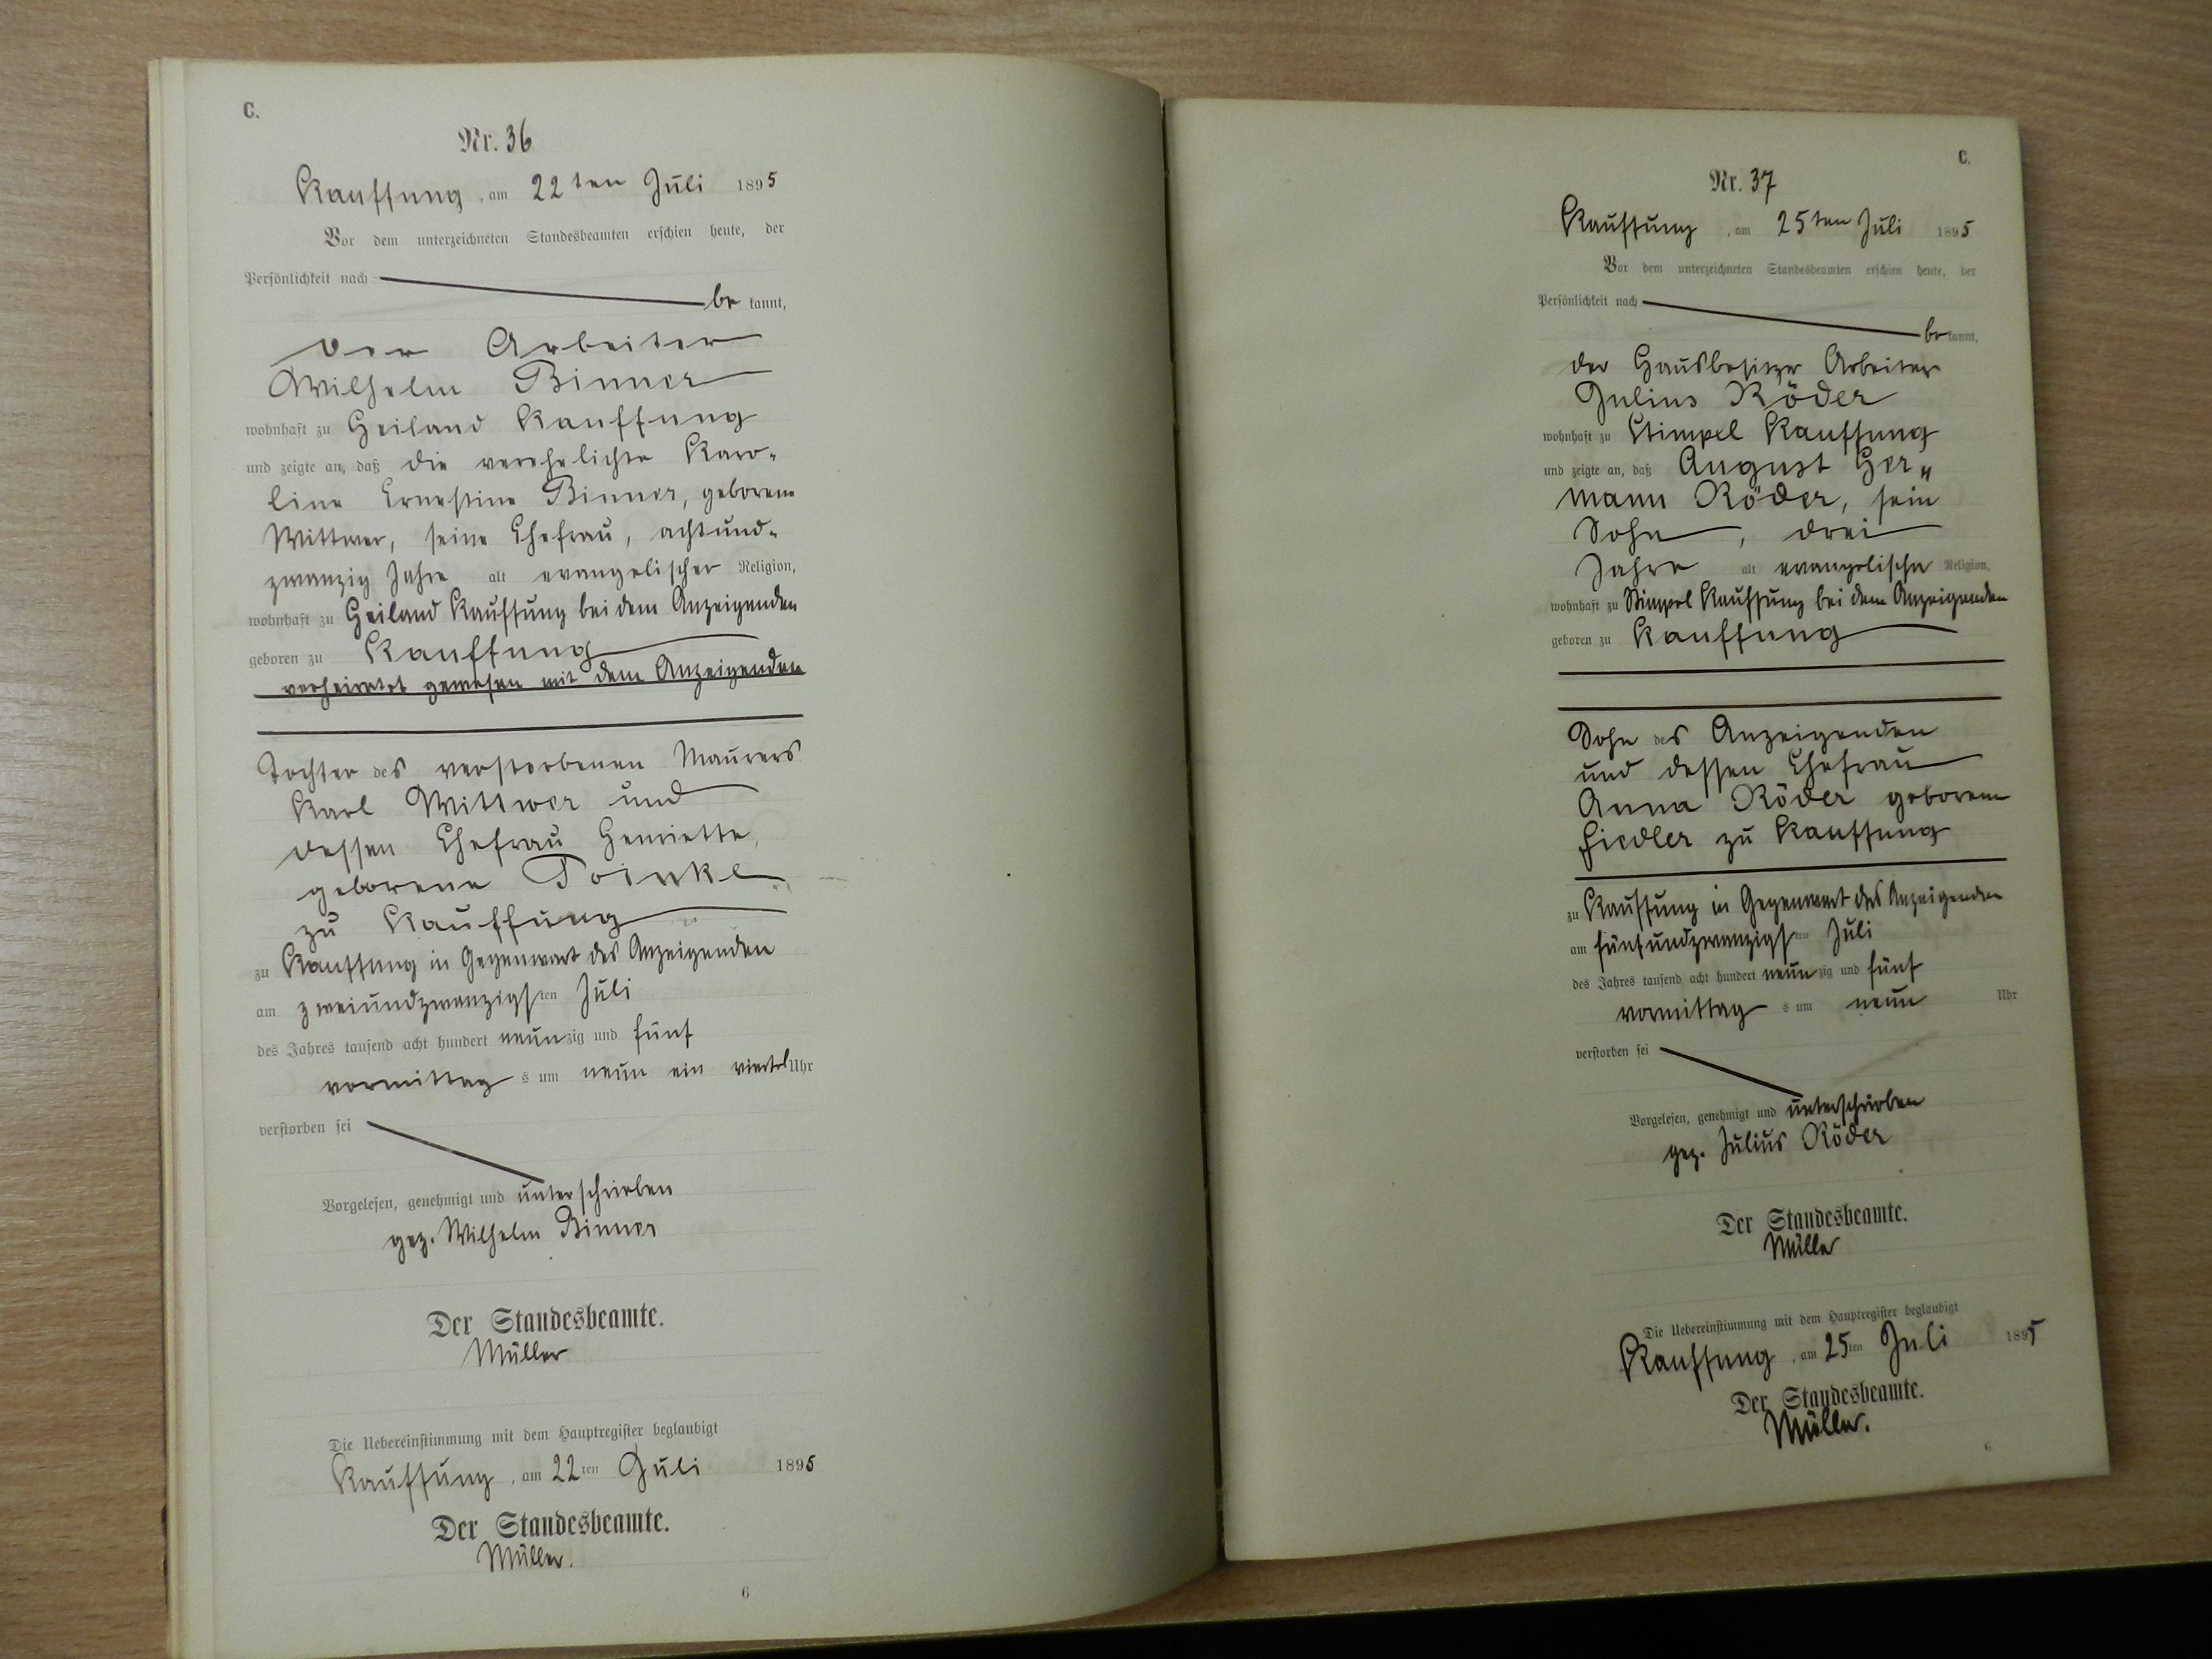 C.
Nr. 36
Kauffung, am 22ten Juli 1895
Vor dem unterzeichneten Standesbeamten erschien heute, der
Persönlichkeit nach
be kannt,
der Arbeiter
Wilhelm Binner
wohnhaft zu Heiland Kauffung
und zeigte an, daß die verehelichte Karo-
line Ernestine Binner, geborene
Wittwer, seine Ehefrau, achtund-
zwanzig Jahre alt evangelischer Religion,
wohnhaft zu Heiland Kauffung bei dem Anzeigenden
geboren zu Kauffung
verheiratet gewesen mit dem Anzeigenden
Tochter des verstorbenen Maurers
Karl Wittwer und
dessen Ehefrau Henriette,
geborene
zu Kauffung
zu Kauffung in Gegenwart des Anzeigenden
am zweiundzwanzigsten Juli
des Jahres tausend acht hundert neunzig und fünf
vormittags um neun ein viertel Uhr
verstorben sei
Vorgelesen, genehmigt und unterschrieben
gez. Wilhelm Binner
Der Standesbeamte.
Müller
Die Uebereinstimmung mit dem Hauptregister beglaubigt
Kauffung, am 22ten Juli 1895
Der Standesbeamte.
Müller.
6
C.
Nr. 37
Kauffung, am 25ten Juli 1895
Vor dem unterzeichneten Standesbeamten erschien heute, der
Persönlichkeit nach
be kannt,
der Hausbesitzer Arbeiter
Julius Röder
wohnhaft zu Stimpel Kauffung
und zeigte an, daß August Her„
mann Röder, sein
Sohn, drei
Jahre alt evangelischer Religion,
wohnhaft zu Stimpel Kauffung bei dem Anzeigenden
geboren zu Kauffung
Sohn des Anzeigenden
und dessen Ehefrau
Anna Röder geborene
Fiedler zu Kauffung
zu Kauffung in Gegenwart des Anzeigenden
am fünfundzwanzigsten Juli
des Jahres tausend acht hundert neunzig und fünf
vormittags um neun Uhr
verstorben sei
Vorgelesen, genehmigt und unterschrieben
gez. Julius Röder
Der Standesbeamte.
Müller
Die Uebereinstimmung mit dem Hauptregister beglaubigt
Kauffung, am 25ten Juli 1895
Der Standesbeamte.
Müller.
6